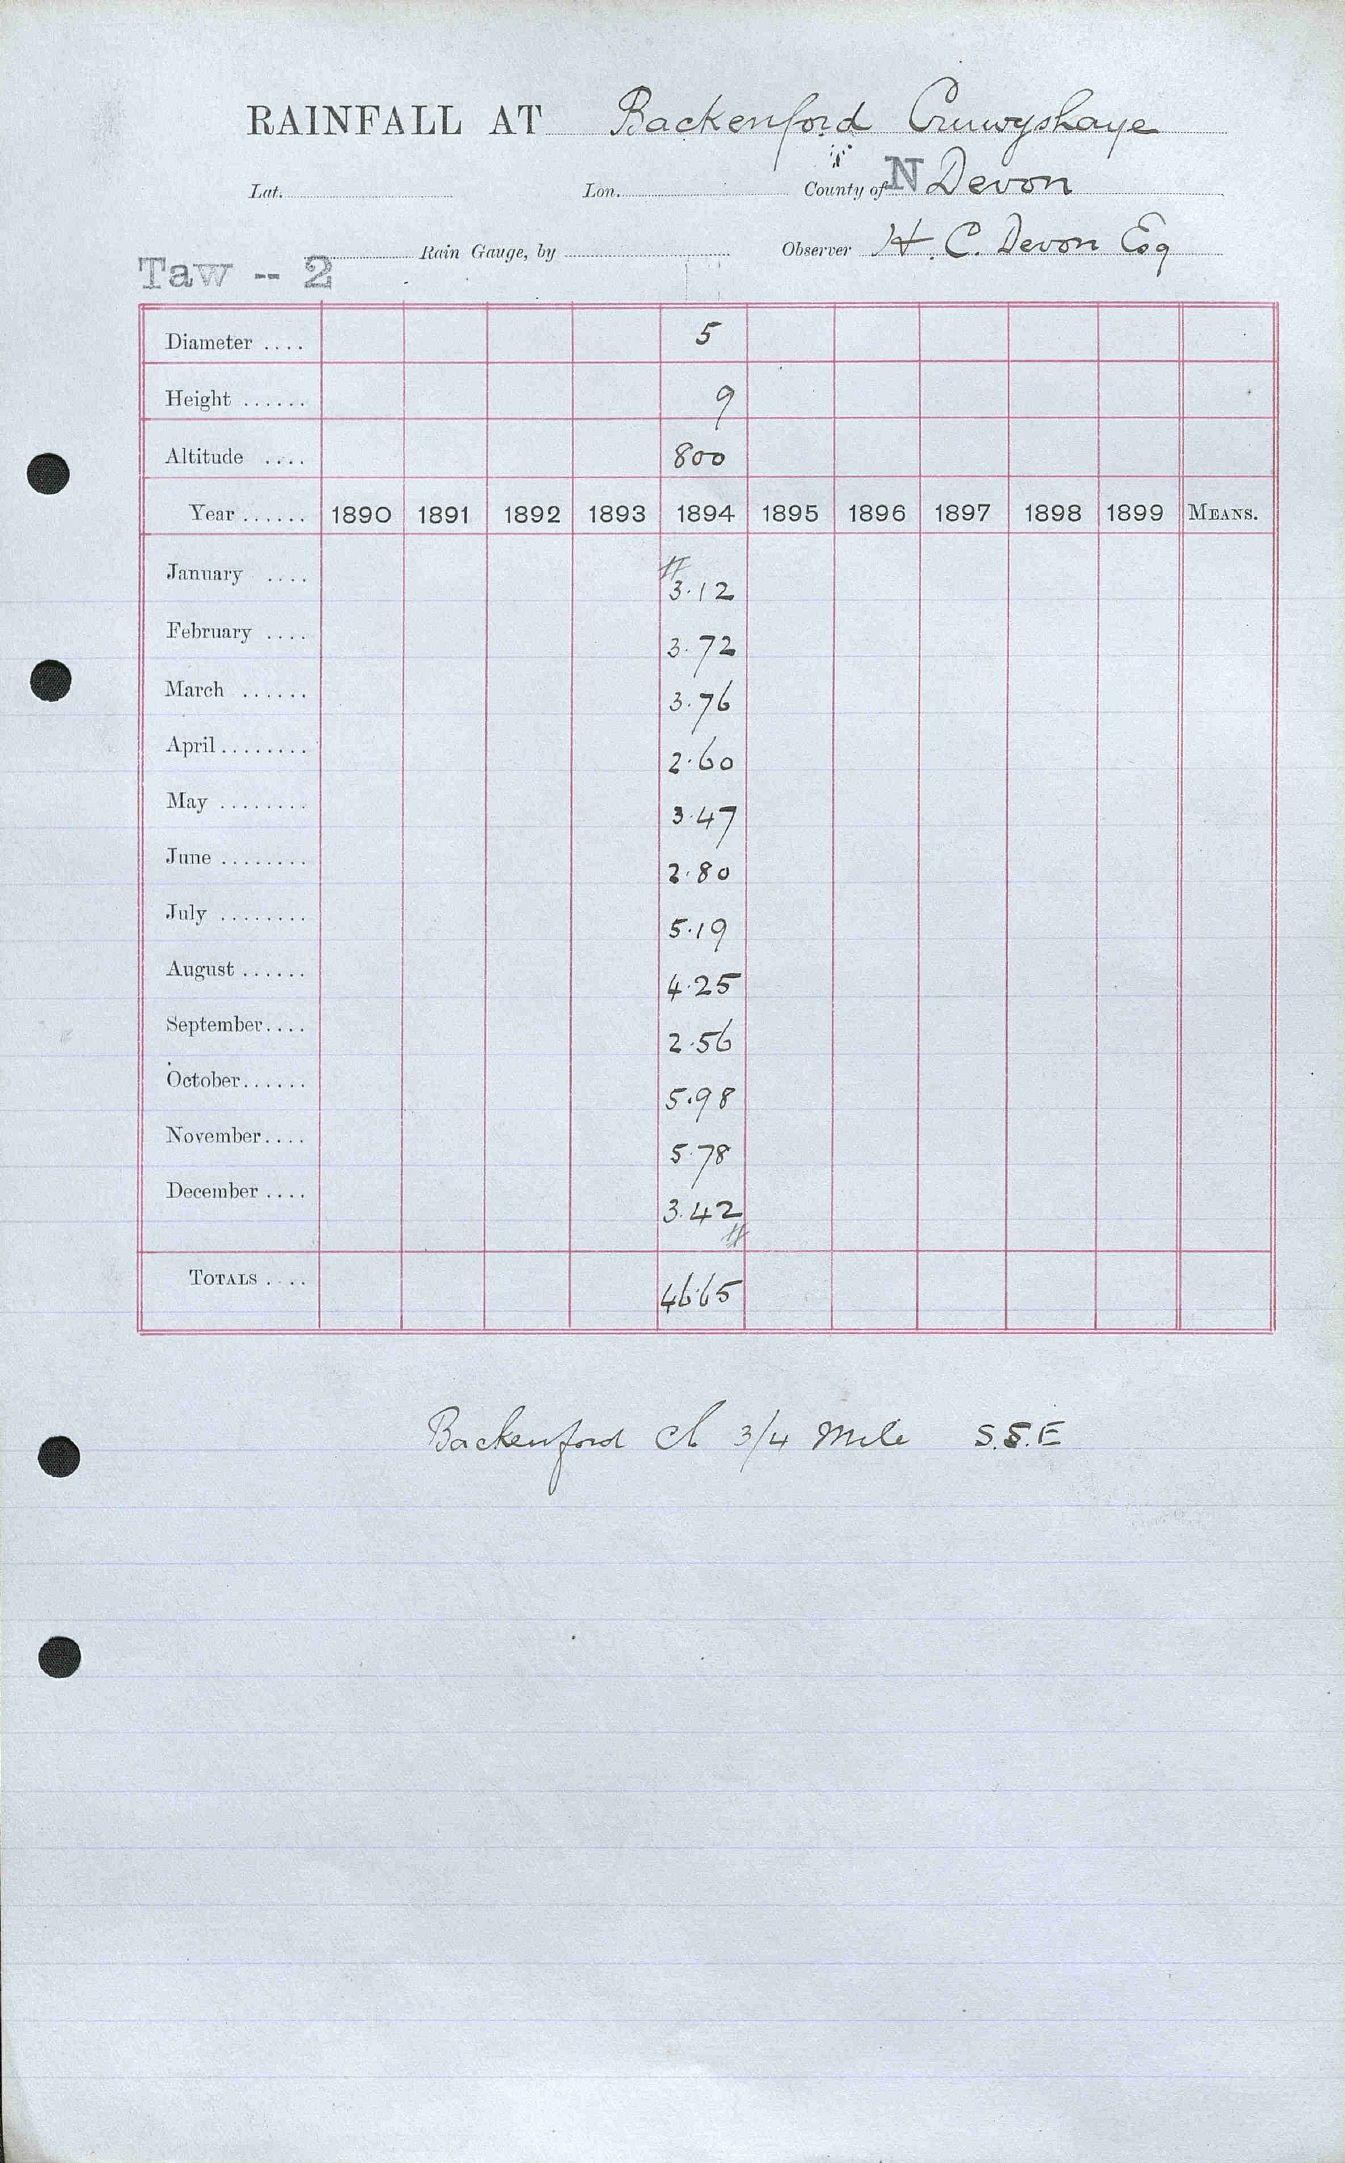 RAINFALL AT Backenford Cruwyshaye
Lat. Lon. County of N Devon
Rain Gauge, by Observer H. C. Devon Esq
Taw -- 2
Diameter .... 5
Height ...... 9
Altitude .... 800
Year ...... 1890 1891 1892 1893 1894 1895 1896 1897 1898 1899 MEANS.
January .... 3.12
February .... 3.72
March ...... 3.76
April ........ 2.60
May ........ 3.47
June ........ 2.80
July ........ 5.19
August ...... 4.25
September.... 2.56
October...... 5.98
November.... 5.78
December .... 3.42
TOTALS .... 46.65
Backenford Ch 3/4 Mile S.S.E